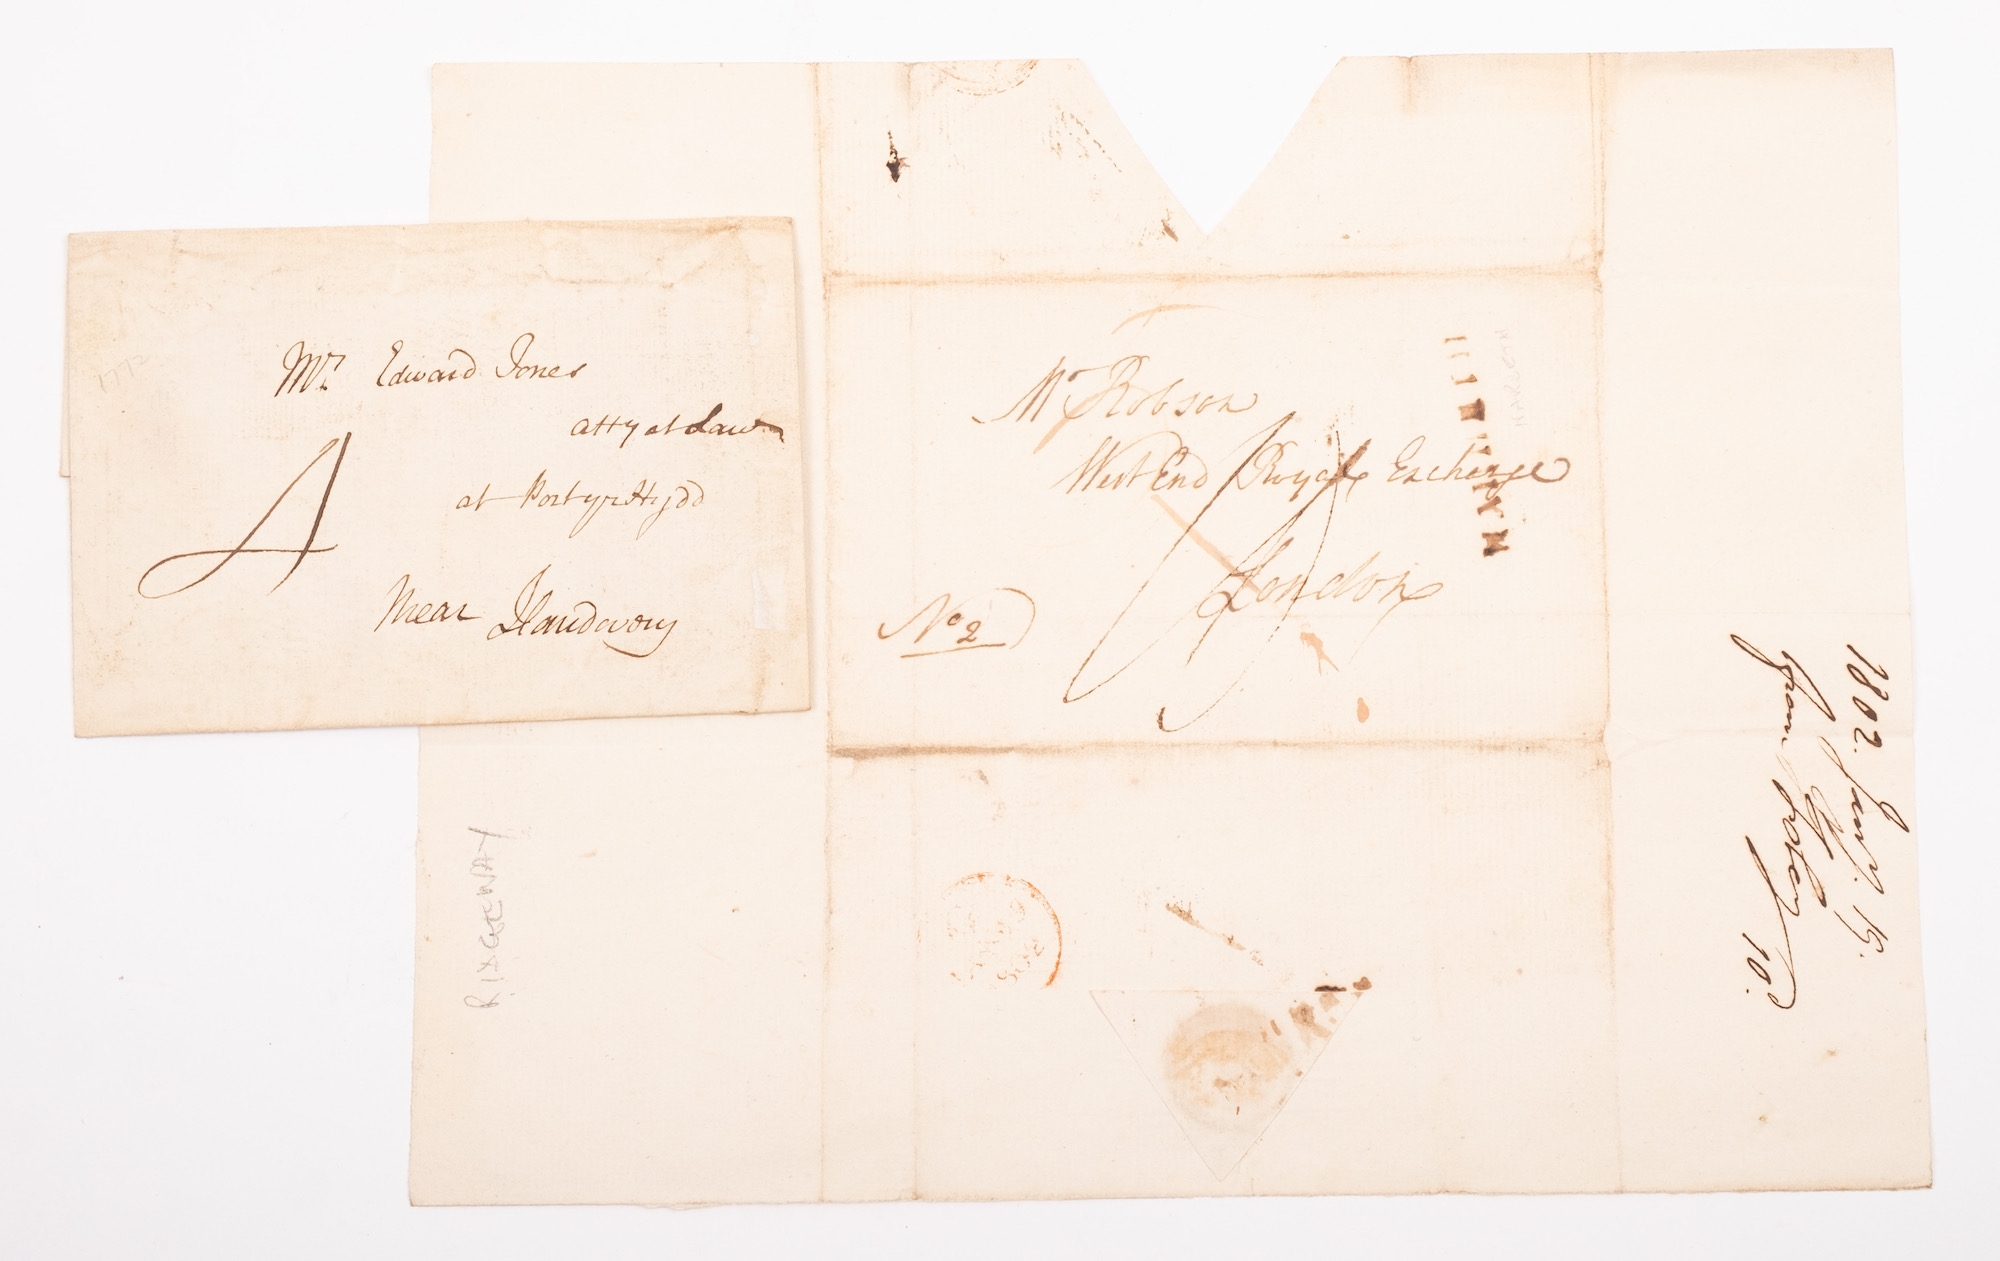 1772
Mr Edward Jones
atty at Law
at Portyr Hydd
Near Llandovery
4
Mr Robson
West End Royal Exchange
London
No 2
RIDGEWAY
1802. Jany. 15.
from
10.